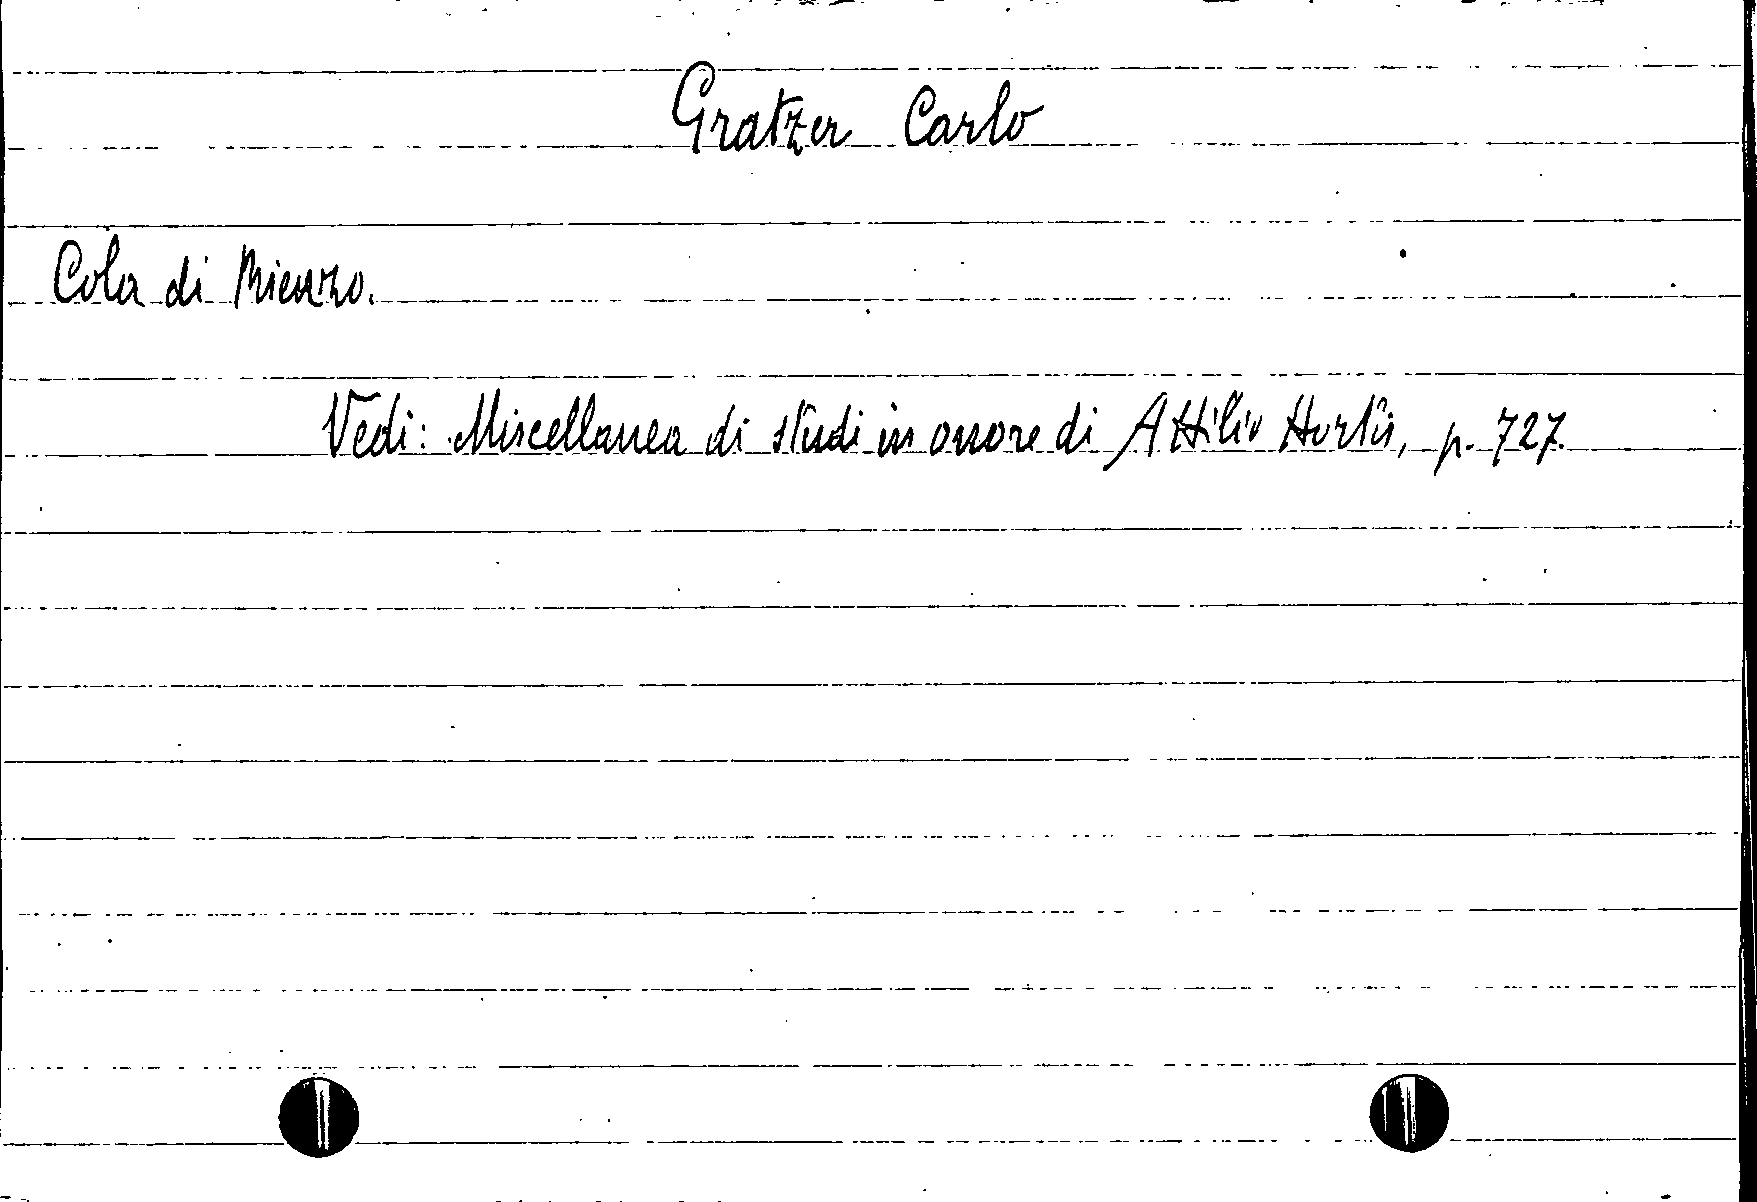 Gratzer Carlo
Cola di Rienzo.
Vedi: Miscellanea di studi in onore di Attilio Hortis, p. 727.